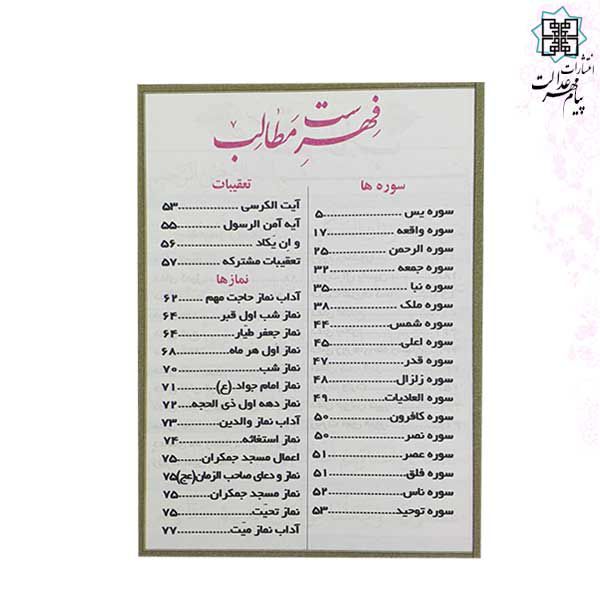 انتشارات
پیام مهر عدالت
فهرست مطالب
سوره ها
سوره یس ........................۵
سوره واقعه ....................۱۷
سوره الرحمن ................۲۵
سوره جمعه ...................۳۲
سوره نبا ........................۳۵
سوره ملک .....................۳۸
سوره شمس..................۴۴
سوره اعلی.....................۴۵
سوره قدر.......................۴۷
سوره زلزال ....................۴۸
سوره العادیات...............۴۹
سوره کافرون .................۵۰
سوره نصر ......................۵۰
سوره عصر .....................۵۱
سوره فلق.......................۵۱
سوره ناس .....................۵۲
سوره توحید...................۵۳
تعقیبات
آیت الکرسی ..................۵۳
آیه آمن الرسول .............۵۵
و اِن یَکاد ......................۵۶
تعقیبات مشترکه ..........۵۷
نمازها
آداب نماز حاجت مهم ......۶۲
نماز شب اول قبر...........۶۴
نماز جعفر طیّار..............۶۴
نماز اول هر ماه..............۶۸
نماز شب.......................۷۰
نماز امام جواد.(ع)..........۷۱
نماز دهه اول ذی الحجه..۷۲
آداب نماز والدین............۷۳
نماز استغاثه..................۷۴
اعمال مسجد جمکران.......۷۵
نماز و دعای صاحب الزمان(عج)۷۵
نماز مسجد جمکران........۷۵
نماز تحیّت....................۷۵
آداب نماز میّت...............۷۷